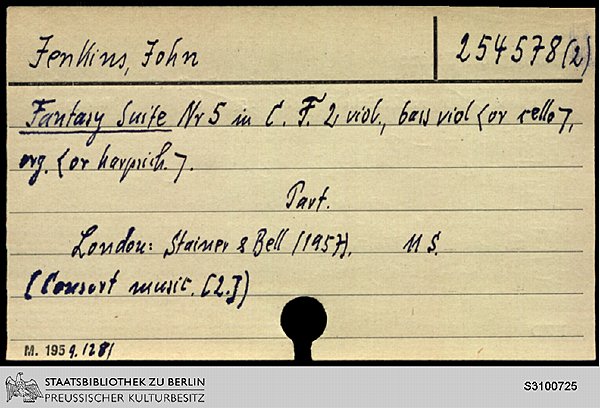 Jenkins, John 254578(2)
Fantasy Suite Nr 5 in C. F. 2 viol., bass viol <or cello>,
org. <or harpsich.>.
Part.
London: Stainer & Bell (1957). 11 S.
(Consort music. [2.])
M. 1959.1281
STAATSBIBLIOTHEK ZU BERLIN
PREUSSISCHER KULTURBESITZ
S3100725